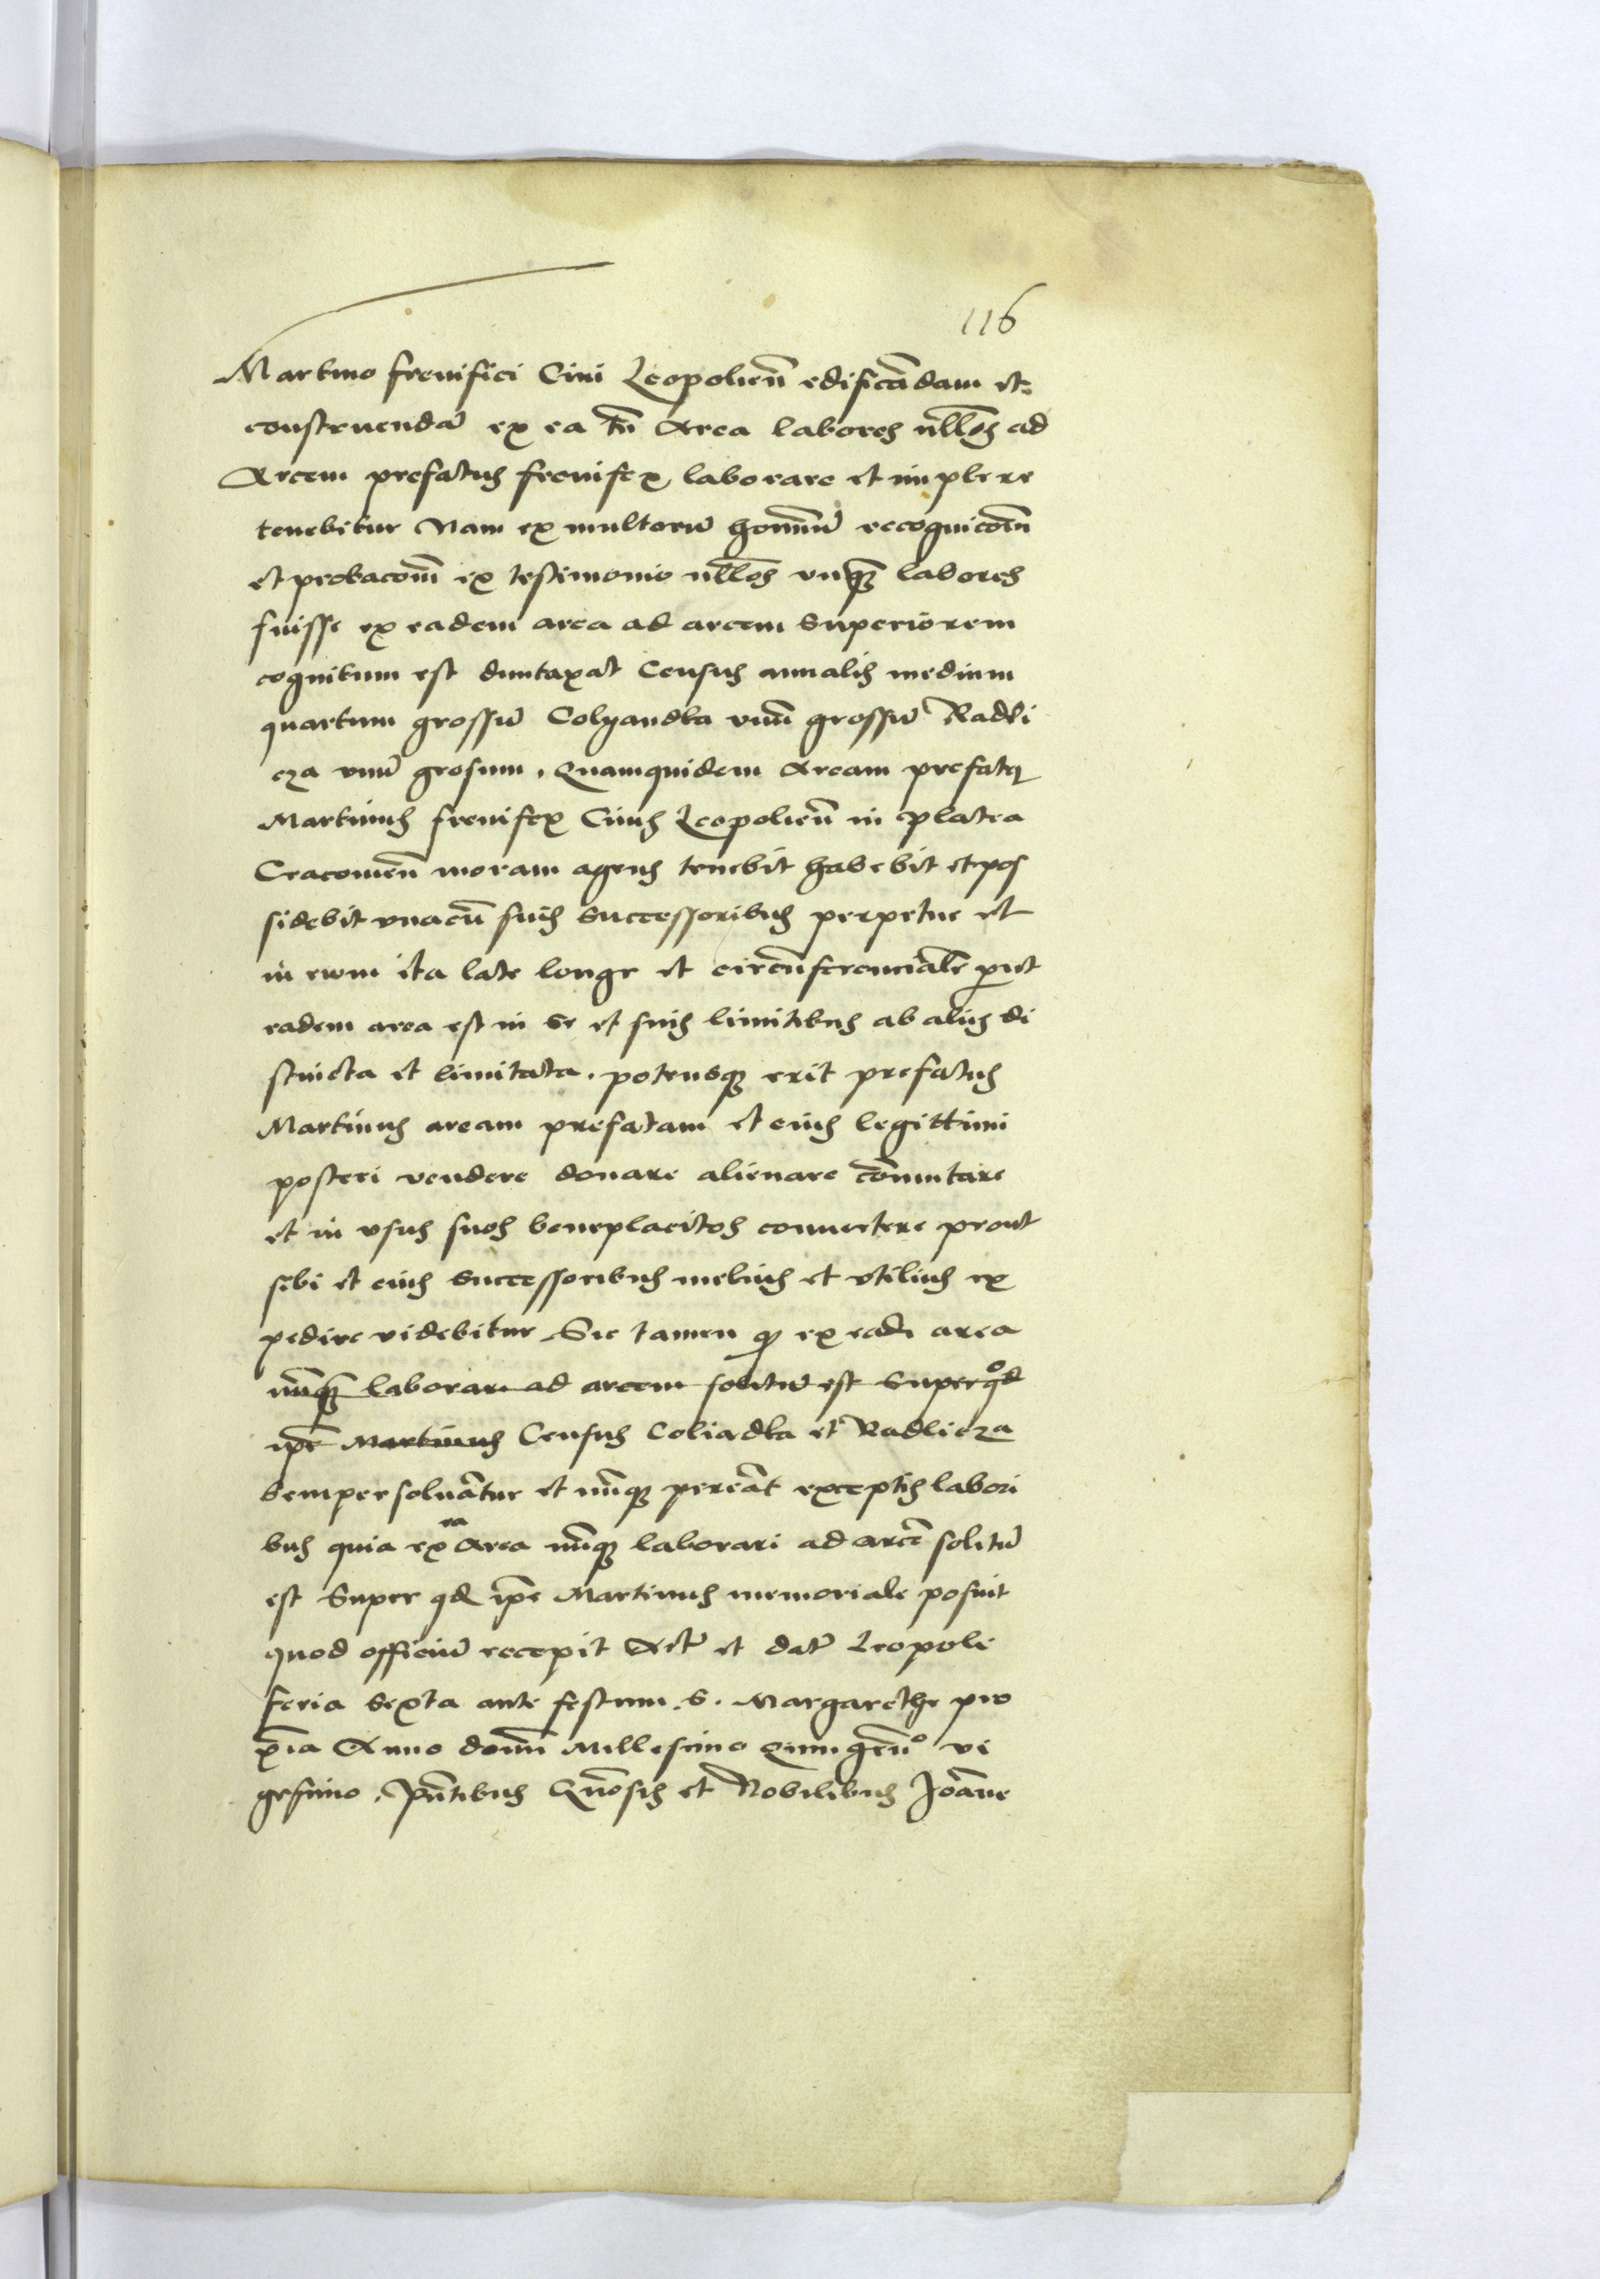 116
Martino frenifici Ciui Leopolien̄ edificādam et
construendā ex ea tn̄ Area labores nll̄os ad
Arcem prefatus frenifex laborare et implere
tenebitur Nam ex multorū hominū recognicōm̄
et probacōm̄ ex testimonio nll̄os vnqȝ labores
fuisse ex eadem area ad arcem Superiorem
cognitum est duntaxat Census annalis medium
quartum grossū Colyandka vnū grossū Radli
cza vnū grosum. Quamquidem Aream prefatꝰ
Martinus frenifex Ciuis Leopolien̄ in platea
Cracouien̄ moram agens tenebit habebit et pos
sidebit vnacū suis Successoribus perpetue et
in euum ita late longe et circūferencialr̄ prut
eadem area est in Se et suis limitibus ab aliis di
stincta et limitata. potensqȝ erit prefatus
Martinus aream prefatam et eius legittimi
posteri vendere donare alienare cōmutare
et in vsus suos beneplacitos conuertere prout
sibi et eius Successoribus melius et vtilius ex
pedire videbitur Sic tamen qꝫ ex eadē area
nūqȝ laborari ad arcem solitū est Super qd
ip̄e Martinus Census Coliadka et Radlicza
Semper soluātur et nūqȝ pereāt exceptis labori
bus quia ex ea Area nūqȝ laborari ad arcē solitū
est Super qd ip̄e Martinus memoriale posuit
quod officiū recepit Actū et datū Leopoli
feria Sexta ante festum. S. Margarethe pro
x̄ia Anno domī Millesimo Quingēn° vi
gesimo. Pn̄tibus Gn̄osis et Nobilibus Joāne